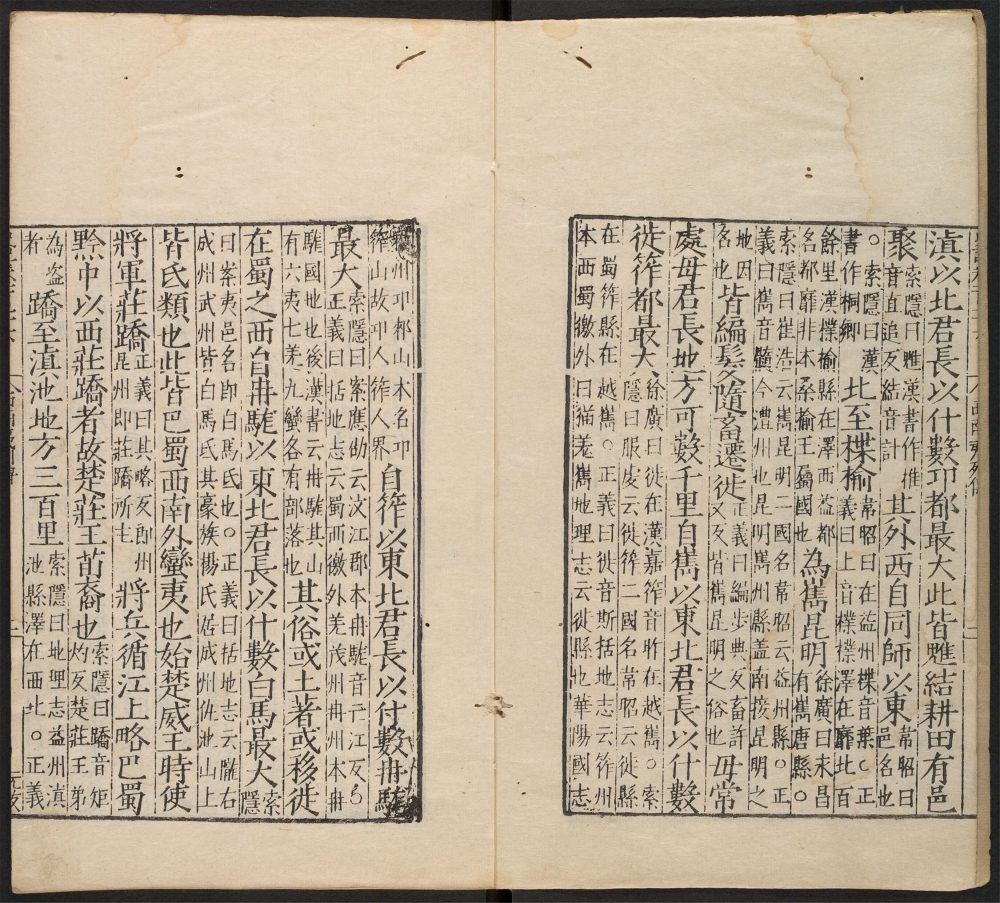 滇以北君長以什數邛都最大此皆魋結耕田有邑
聚索隱曰魋漢書作椎音直追反結音計其外西自同師以東韋昭曰邑名也
。索隱曰漢書作桐鄉北至楪榆韋昭曰在益州楪音葉。正義曰上音楪楪澤在靡北百
餘里漢楪榆縣在澤西益都名都靡非本桑榆王屬國也為嶲昆明徐廣曰永昌有嶲唐縣。
索隱曰崔浩云嶲昆明二國名韋昭云益州縣。正義曰嶲音髓今澧州也昆明嶲州縣盖南接昆明之
地因名也皆編髮隨畜遷徙正義曰編步典反畜許又反皆嶲昆明之俗也毋常
處毋君長地方可數千里自嶲以東北君長以什數
徙筰都最大徐廣曰徙在漢嘉筰音昨在越嶲。索隱曰服虔云徙筰二國名韋昭云徙縣
在蜀筰縣在越嶲。正義曰徙音斯括地志云筰州本西蜀徼外曰猫羌嶲地理志云徙縣也華陽國志
州邛郲山本名邛筰山故邛人筰人界自筰以東北君長以付數冉駹
最大索隱曰案應劭云汶江郡本冉駹音亡江反。正義曰括地志云蜀西徼外羌茂州冉州本冉
駹國地也後漢書云冉駹其山有六夷七羌九蠻各有部落也其俗或土著或移徙
在蜀之西自冉駹以東北君長以什數白馬最大索隱
曰案夷邑名即白馬氐也。正義曰括地志云隴右成州武州皆白馬氐其豪族楊氏居成州仇池山上
皆氐類也此皆巴蜀西南外蠻夷也始楚威王時使
將軍莊蹻正義曰其略反郎州昆州即莊蹻所王將兵循江上略巴蜀
黔中以西莊蹻者故楚莊王苗裔也索隱曰蹻音矩灼反楚莊王弟
為盜者蹻至滇池地方三百里索隱曰地理志益州滇池縣澤在西北。正義